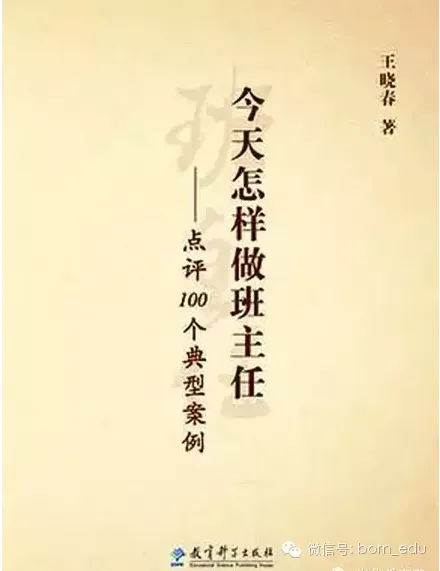 王晓春 著
今天怎样做班主任
——点评100个典型案例
教育科学出版社
Educational Science Publishing House
微信号: bom_edu